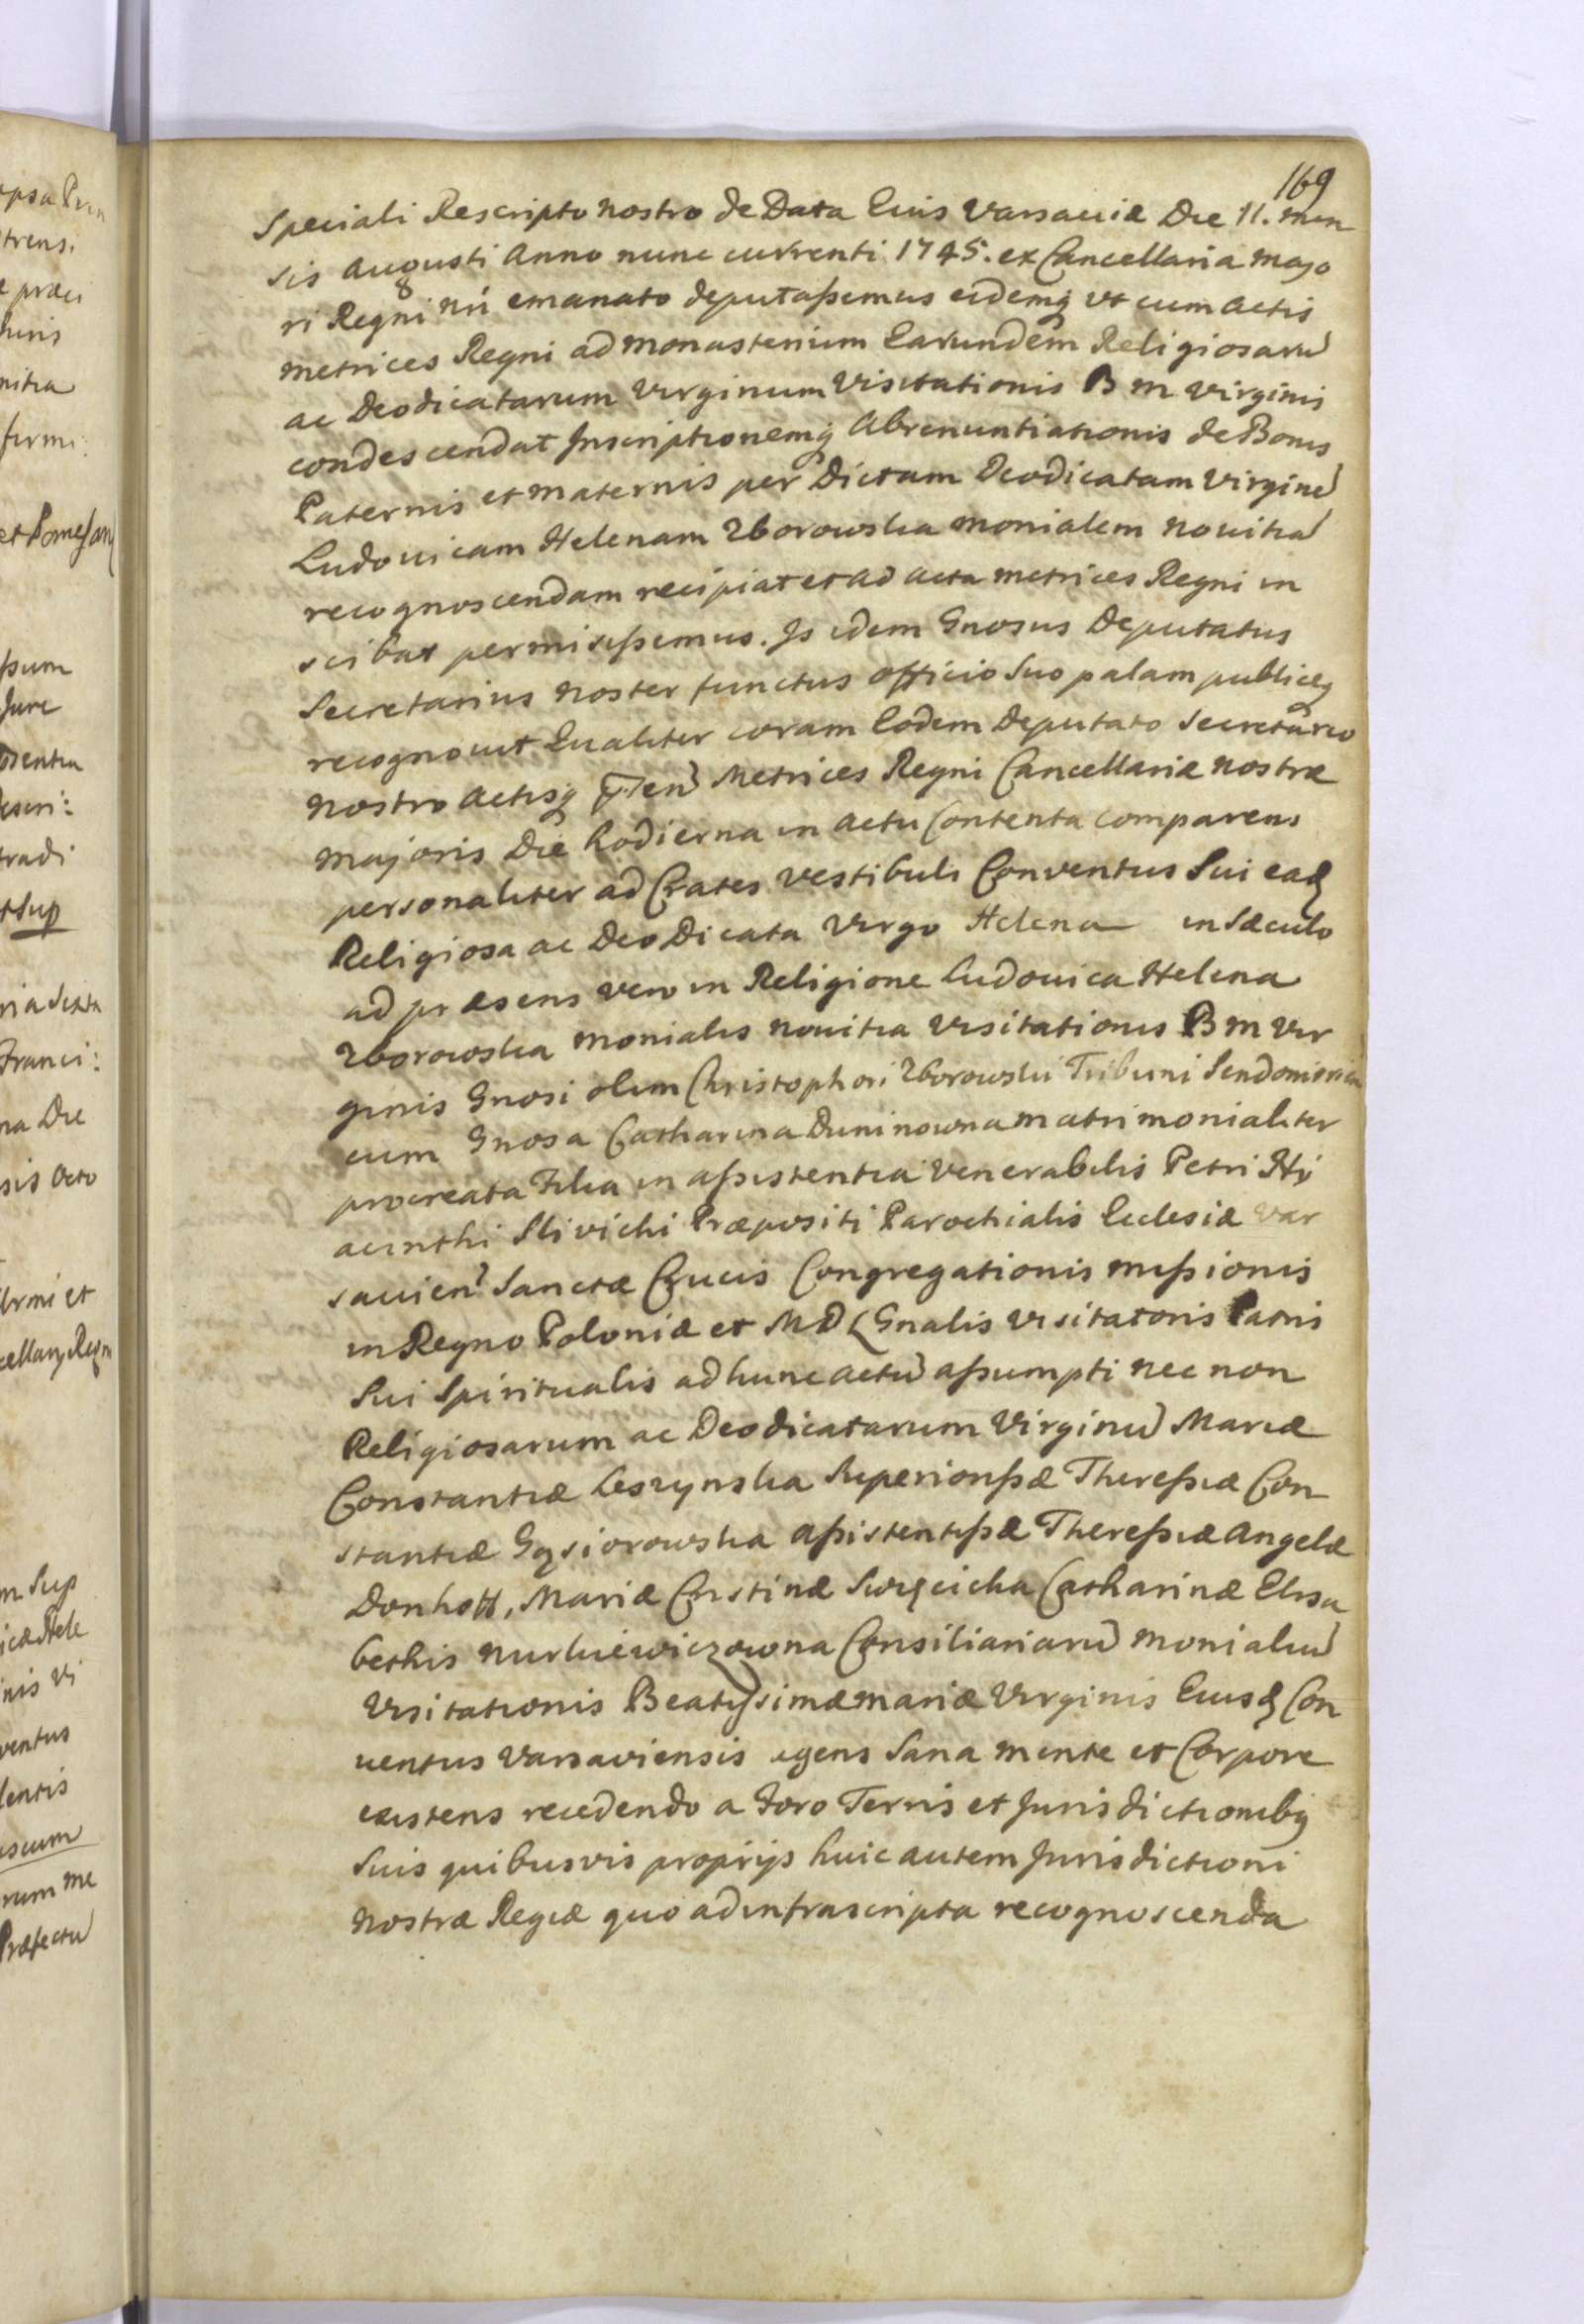 169
Speciali Rescripto nostro de Data Eius Varsaviæ Die 11. men
sis Augusti Anno nunc currenti 1745. ex Cancellaria Majo
ri Regni nri emanato deputaßemus eidemq ut cum Actis
metrices Regni ad monasterium Earundem Religiosaru
ac Deodicatarum Virginum Visitationis B M Virginis
condescendat Inscriptionemq Abrenuntiationis de Bonis
Paternis et maternis per Dictam Deodicatam Virgine
Ludovicam Helenam Zborowska monialem novitia
recognoscendam recipiat et ad acta metrices Regni in
scibat permisißemus. Is idem Gnosus Deputatus
Secretarius noster functus officio suo palam publiceq
recognovit Qualiter coram Eodem Deputato Secretario
nostro Actisq Metrices Regni Cancellariæ nostræ
majoris Die hodierna in actu contenta comparens
personaliter ad Crates Vestibuli Conventus Sui ead
Religiosa ac Deo Dicata Virgo Helena in Sæculo
ad præsens vero in Religione Ludovica Helena
Zborowska monialis novitia Visitationis B M Vir
ginis Gnosi olim Christophori Zborowski Tribuni Sendomirien
cum Gnosa Catharina Duninowna matrimonialiter
procreata Filia in aßistentia Venerabilis Petri Hi
acinthi Slivicki Præpositi Parochialis Ecclesiæ Var
savien Sanctæ Crucis Congregationis mißionis
in Regno Poloniæ et M D L Gnalis Visitatoris Patris
Sui Spiritualis ad hunc actu aßumpti nec non
Religiosarum ac Deodicatarum Virginu Mariæ
Constantiæ Leszynska Superiorißæ Thereßiæ Con
stantiæ Gąsiorowska aßistentißæ Thereßiæ Angelæ
Donhoff, Mariæ Cristinæ Catharinæ Elisa
bethis Nurkiewiczowna Consiliariaru monialiu
Visitationis Beatißimæ Mariæ Virginis Eiusd Con
ventus Varsaviensis egens Sana mente et Corpore
existens recedendo a Foro Terris et Jurisdictionibq
Suis quibusvis proprijs huic autem Jurisdictioni
nostræ Regiæ quo ad infrascripta recognoscenda